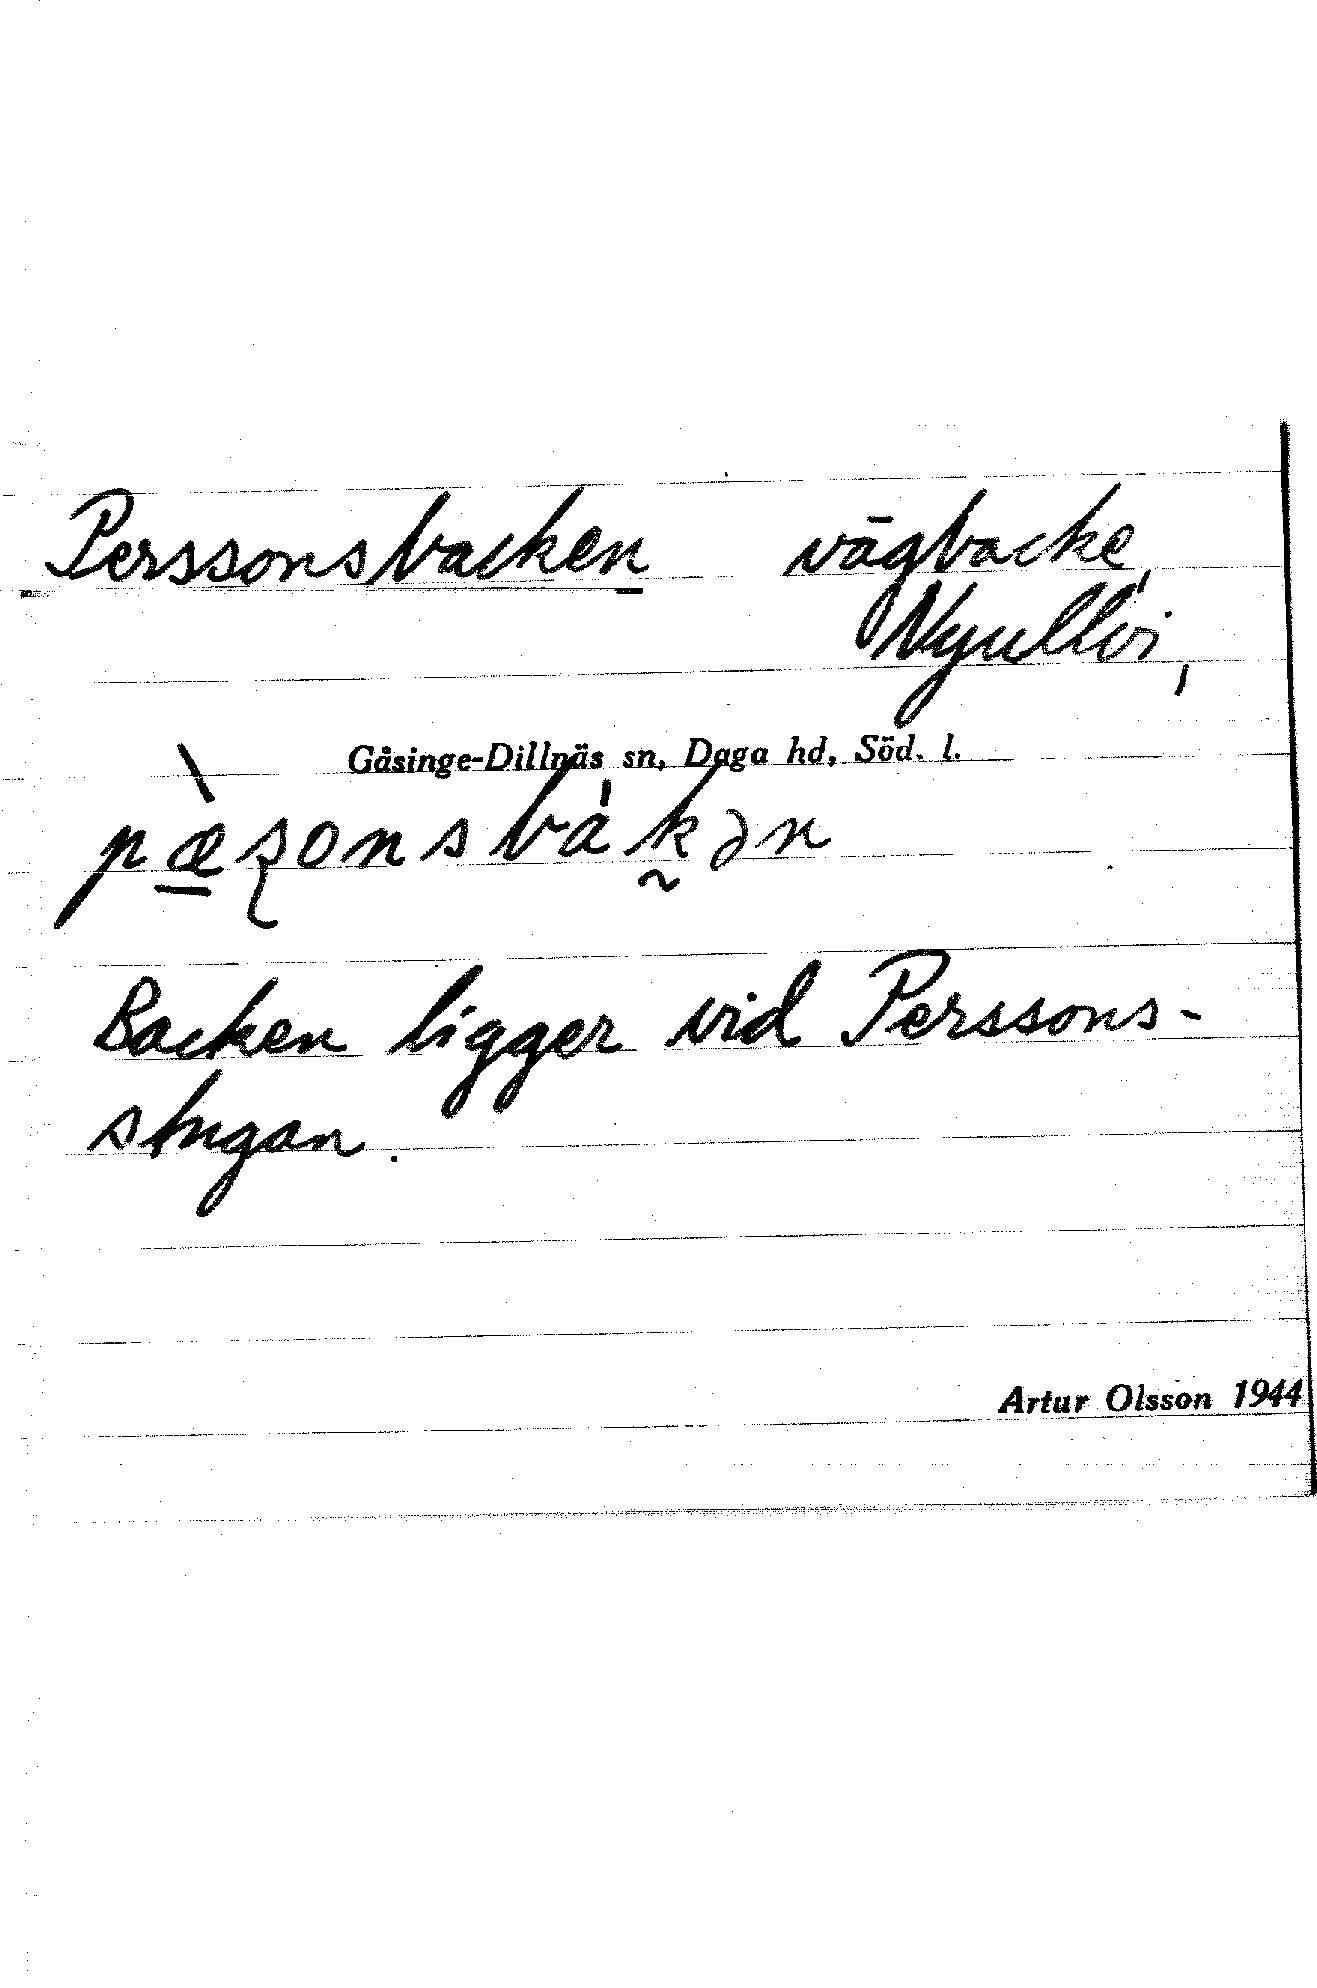 Perssonsbacken vägbacke,
Nyullvi,
Gåsinge-Dillnäs sn, Daga hd, Söd. l.
pæ̠̀ʂonsbàk̰ən
Backen ligger vid Perssons-
stugan.
Artur Olsson 1944